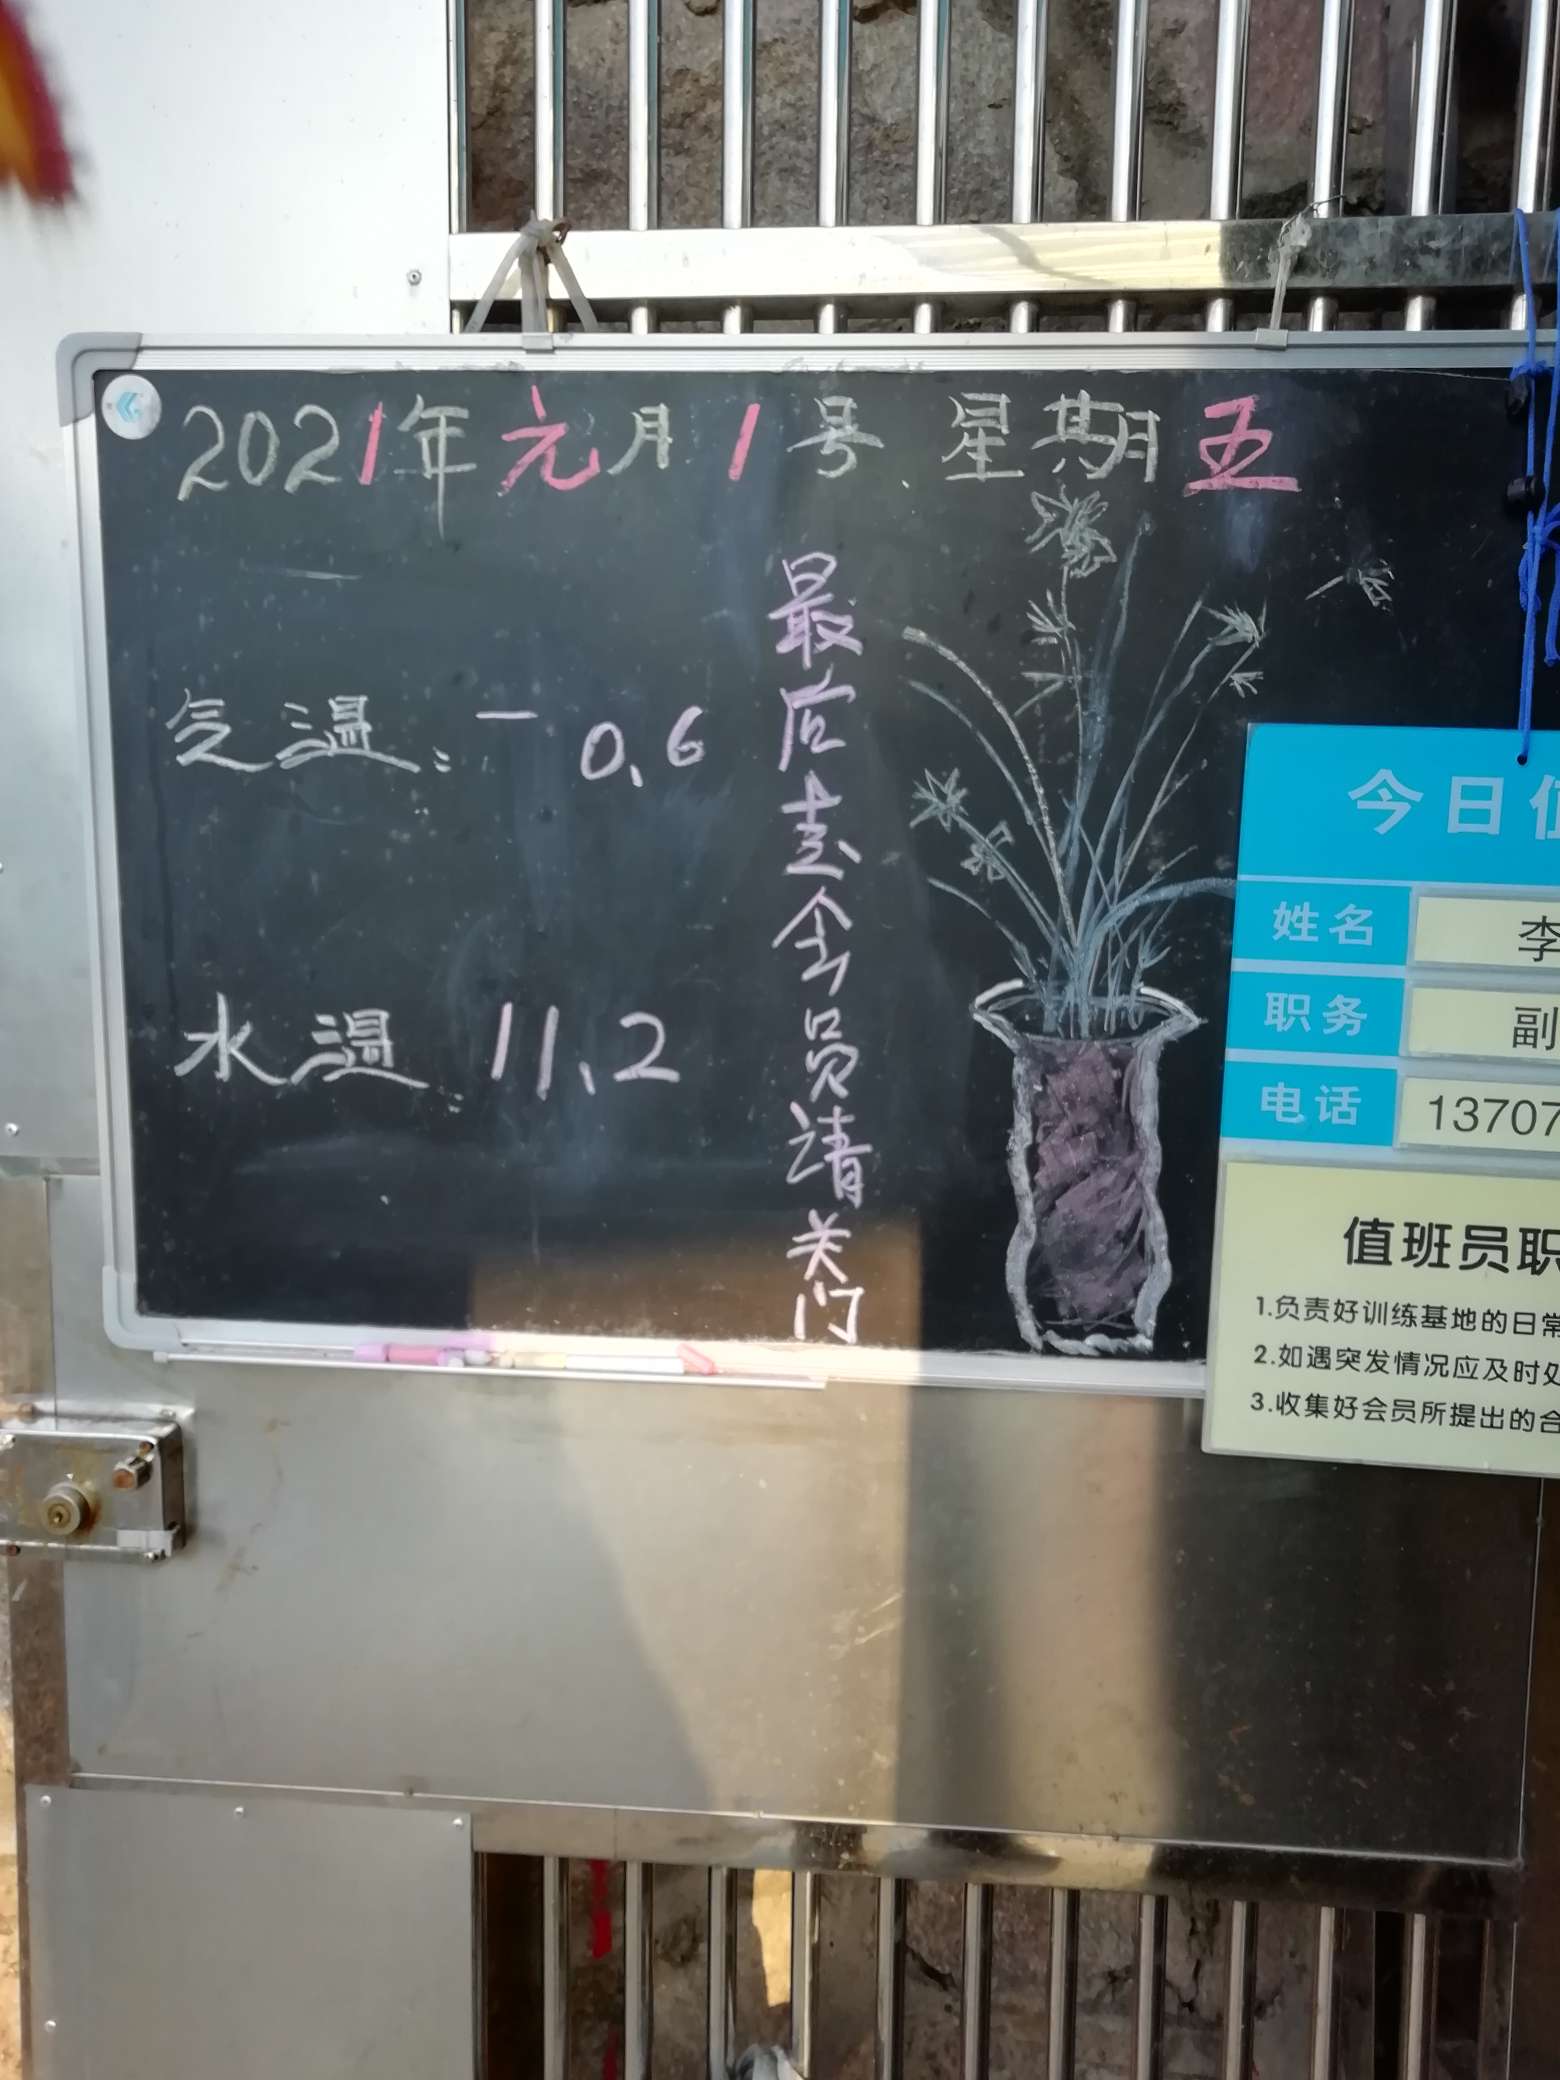 2021年元月1号 星期五
气温: -0.6
水温: 11.2
最后走会员请关门
今日值
姓名 李
职务 副
电话 13707
值班员职
1.负责好训练基地的日常
2.如遇突发情况应及时处
3.收集好会员所提出的合